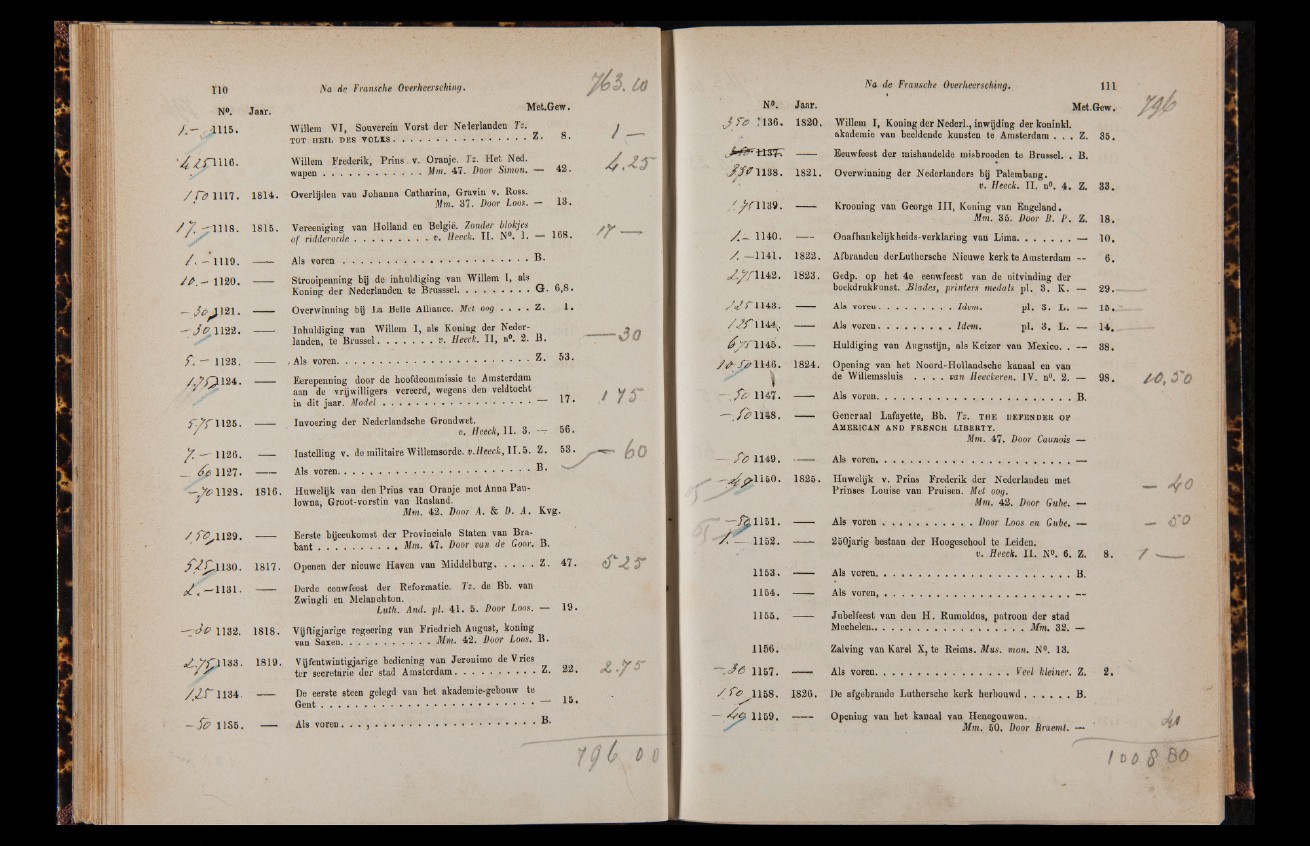 110 Na de Fransche Overheersching. 763.10
Nº. Jaar. Met.Gew.
1.— 1115. Willem VI, Souverein Vorst der Nederlanden Tz.
TOT HEIL DES VOLKS. . . . . . . . . . . . . . . . . Z. 8. 1 —
4.25 1116. Willem Frederik, Prins v. Oranje. Tz. Het Ned.
wapen . . . . . . . . . . . . Mm. 47. Door Simon. — 42. 4.25
1.50 1117. 1814. Overlijden van Johanna Catharina, Gravin v. Ross.
Mm. 37. Door Loos. — 13.
17.— 1118. 1815. Vereeniging van Holland en België. Zonder blokjes
of ridderorde . . . . . . . . . v. Heeck. II. Nº. 1. — 168. 17 —
1.— 1119. —— Als voren . . . . . . . . . . . . . . . . . . . . . B.
10.— 1120. —— Strooipenning bij de inhuldiging van Willem I, als
Koning der Nederlanden te Brusssel. . . . . . . . . G. 6,8.
—30 1121. —— Overwinning bij La Belle Alliance. Met oog . . . . Z. 1.
—30 1122. —— Inhuldiging van Willem I, als Koning der Neder-
landen, te Brussel . . . . . . . v. Heeck. II, nº. 2. B. —30
5.— 1123. —— Als voren. . . . . . . . . . . . . . . . . . . . . Z. 53.
1.75 1124. —— Eerepenning door de hoofdcommissie te Amsterdam
aan de vrijwilligers vereerd, wegens den veldtocht
in dit jaar. Model . . . . . . . . . . . . . . . . — 17. 1 75
5.75 1125. —— Invoering der Nederlandsche Grondwet.
v. Heeck, II. 3. — 56.
7.— 1126. —— Instelling v. de militaire Willemsorde. v. Heeck, II. 5. Z. 53. — 60
—60 1127. —— Als voren. . . . . . . . . . . . . . . . . . . . . B.
—70 1128. 1816. Huwelijk van den Prins van Oranje met Anna Pau-
lowna, Groot-vorstin van Rusland.
Mm. 42. Door A. & D. A. Kvg.
1.50 1129. —— Eerste bijeenkomst der Provinciale Staten van Bra-
bant . . . . . . . . . . Mm. 47. Door van de Goor. B.
5.25 1130. 1817. Openen der nieuwe Haven van Middelburg. . . . . Z. 47. 5 25
2.— 1131. —— Derde eeuwfeest der Reformatie. Tz. de Bb. van
Zwingli en Melanchton.
Luth. And. pl. 41. 5. Door Loos. — 19.
—30 1132. 1818. Vijftigjarige regeering van Friedrich August, koning
van Saxen. . . . . . . . . . . . Mm. 42. Door Loos. B.
2.75 1133. 1819. Vijfentwintigjarige bediening van Jeronimo de Vries
ter secretarie der stad Amsterdam . . . . . . . . . . Z. 22. 2.75
1.25 1134. —— De eerste steen gelegd van het akademie-gebouw te
Gent . . . . . . . . . . . . . . . . . . . . . . . — 15.
—50 1135. —— Als voren . . . . . . . . . . . . . . . . . . . . . B.
796 00
Na de Fransche Overheersching. 111
Nº. Jaar. Met.Gew. 796
3.50 1136. 1820. Willem I, Koning der Nederl., inwijding der koninkl.
akademie van beeldende kunsten te Amsterdam . . . Z. 35.
1137. —— Eeuwfeest der mishandelde misbrooden te Brussel. . B.
3.50 1138. 1821. Overwinning der Nederlanders bij Palembang.
v. Heeck. II. nº. 4. Z. 33.
1.75 1139. —— Krooning van George III, Koning van Engeland.
Mm. 35. Door B. P. Z. 18.
1.— 1140. —— Onafhankelijkheids-verklaring van Lima. . . . . . . — 10.
1.— 1141. 1822. Afbranden der Luthersche Nieuwe kerk te Amsterdam — 6.
2.75 1142. 1823. Gedp. op het 4e eeuwfeest van de uitvinding der
boekdrukkunst. Blades, printers medals pl. 3. K. — 29.
1.25 1143. —— Als voren . . . . . . . . . . Idem. pl. 3. L. — 15.
1.25 1144. —— Als voren . . . . . . . . . . Idem. pl. 3. L. — 14.
6.75 1145. —— Huldiging van Augustijn, als Keizer van Mexico. . — 38.
10.50 1146. 1824. Opening van het Noord-Hollandsche kanaal en van
de Willemssluis . . . . van Heeckeren. IV. nº. 2. — 98. 10,50
—.50 1147. —— Als voren. . . . . . . . . . . . . . . . . . . . . B.
—.50 1148. —— Generaal Lafayette, Bb. Tz. THE DEFENDER OF
AMERICAN AND FRENCH LIBERTY.
Mm. 47. Door Caunois —
—50 1149. —— Als voren. . . . . . . . . . . . . . . . . . . . . —
—40 1150. 1825. Huwelijk v. Prins Frederik der Nederlanden met
Prinses Louise van Pruisen. Met oog.
Mm. 42. Door Gube. — — 40
—50 1151. —— Als voren . . . . . . . . . . . Door Loos en Gube. — — 50
1.— 1152. —— 250jarig bestaan der Hoogeschool te Leiden.
v. Heeck. II. Nº. 6. Z. 8. 1 —
1153. —— Als voren. . . . . . . . . . . . . . . . . . . . . B.
1154. —— Als voren. . . . . . . . . . . . . . . . . . . . . —
1155. —— Jubelfeest van den H. Rumoldus, patroon der stad
Mechelen. . . . . . . . . . . . . . . . . . . Mm. 32. —
1156. Zalving van Karel X, te Reims. Mus. mon. Nº. 13.
—.30 1157. —— Als voren. . . . . . . . . . . . . . . . . Veel kleiner. Z. 2.
1.50 1158. 1826. De afgebrande Luthersche kerk herbouwd . . . . . . B.
—40 1159. —— Opening van het kanaal van Henegouwen.
Mm. 50. Door Braemt. — 40
1008 80